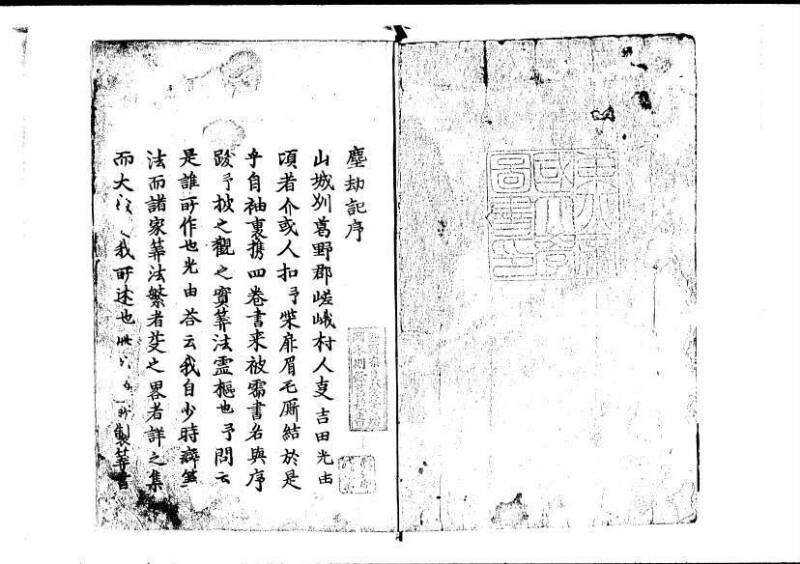 塵劫記序
山城州葛野郡嵯峨村人吉田光由
頃者介或人扣予柴扉眉毛厮結於是
乎自袖裏携四卷書来被需書名與序
跋予披之觀之實筭法霊樞也予問云
是誰所作也光由荅云我自少時癖筭
法而諸家筭法繁者芟之畧者詳之集
而大 我所述也 製筭書